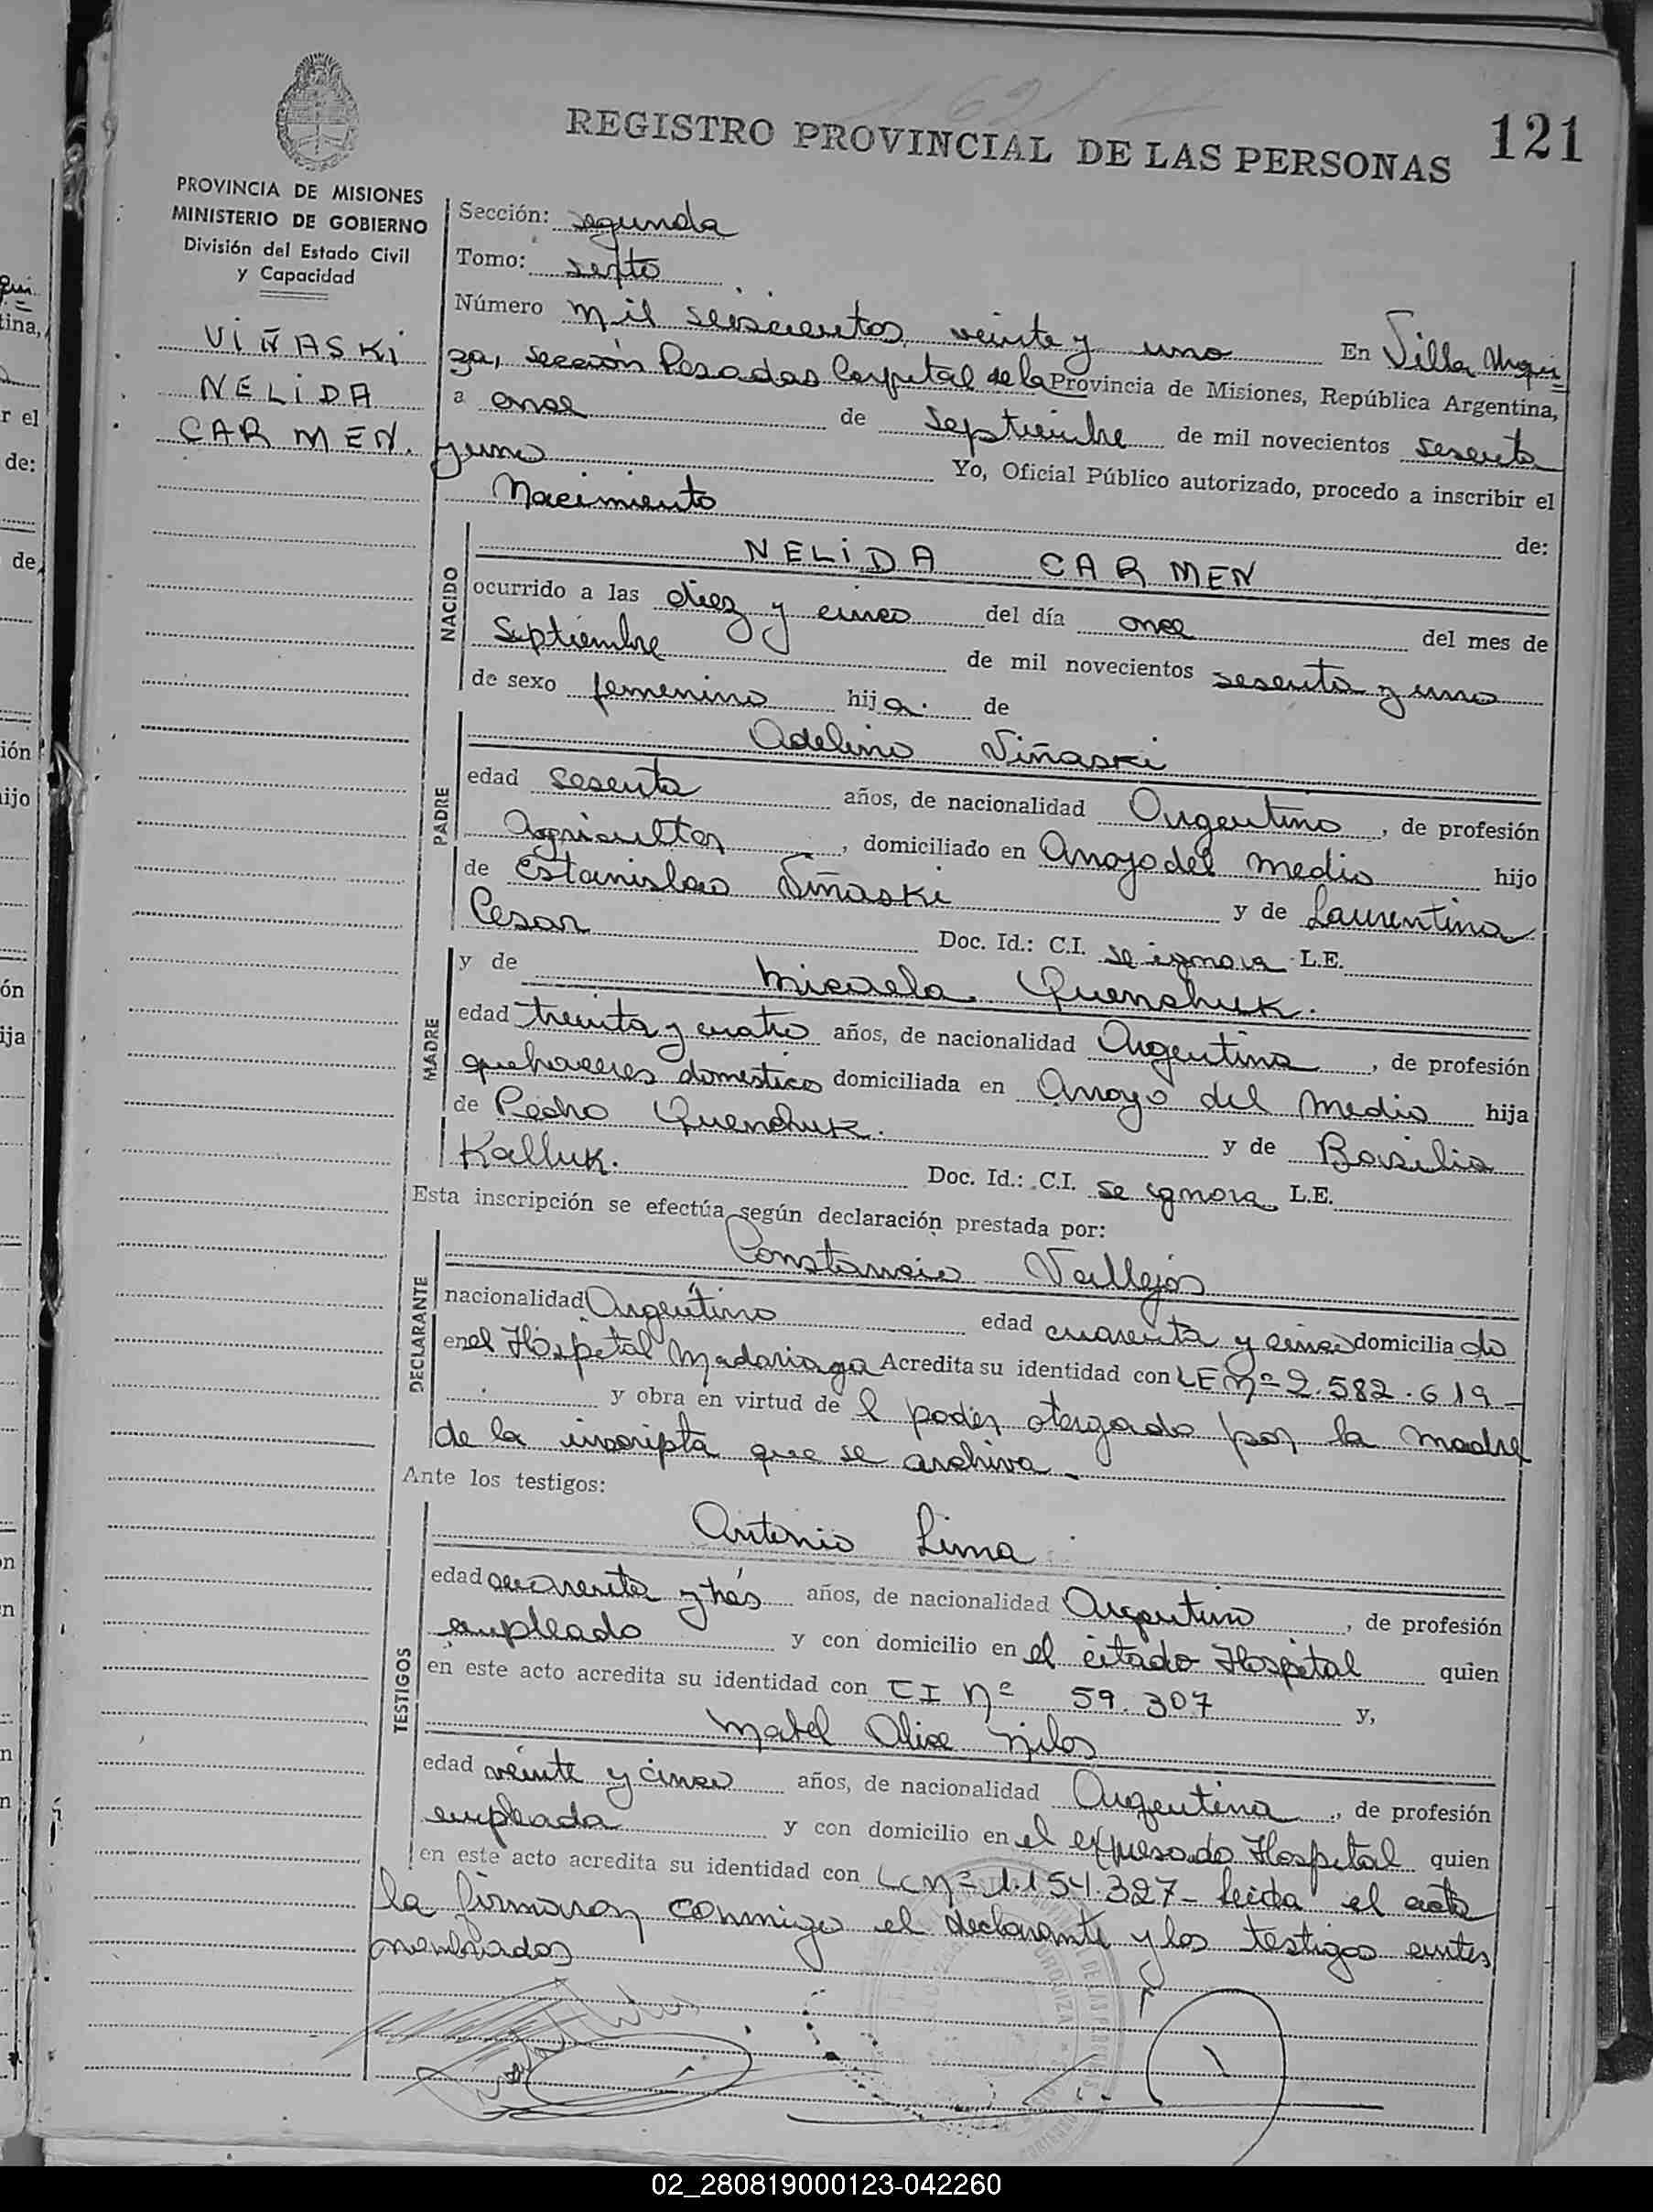 REGISTRO PROVINCIAL DE LAS PERSONAS 121
PROVINCIA DE MISIONES
MINISTERIO DE GOBIERNO
División del Estado Civil
y Capacidad
VIÑASKI
NELIDA
CARMEN.
Sección: segunda
Tomo: sexto
Número mil seiscientos veinte y uno En Villa Urqui=
za, sección Posadas Capital de la Provincia de Misiones, República Argentina,
a once de Septiembre de mil novecientos sesenta
y uno Yo, Oficial Público autorizado, procedo a inscribir el
Nacimiento de:
NACIDO
NELIDA CARMEN
ocurrido a las diez y cinco del día once del mes de
Septiembre de mil novecientos sesenta y uno
de sexo femenino hija de
PADRE
Adelino Viñaski
edad sesenta años, de nacionalidad Argentino, de profesión
Agricultor, domiciliado en Arroyo del medio hijo
de Estanislao Viñaski y de Laurentina
Cesar Doc. Id.: C.I. se ignora L.E.
MADRE
y de Micaela Quenchuk.
edad treinta y cuatro años, de nacionalidad Argentina, de profesión
quehaceres domésticos domiciliada en Arroyo del medio hija
de Pedro Quenchuk. y de Basilia
Kalluk. Doc. Id.: C.I. se ignora L.E.
Esta inscripción se efectúa según declaración prestada por:
DECLARANTE
Constancio Vallejos
nacionalidad Argentino edad cuarenta y cinco domiciliado
en el Hospital Madariaga Acredita su identidad con LE Nº 2.582.619-
y obra en virtud de l poder otorgado por la madre
de la inscripta que se archiva-
Ante los testigos:
TESTIGOS
Antonio Lima
edad cuarenta y trés años, de nacionalidad Argentino, de profesión
empleado y con domicilio en el citado Hospital quien
en este acto acredita su identidad con CI Nº 59.307 y,
Mabel Alice
edad veinte y cinco años, de nacionalidad Argentina, de profesión
empleada y con domicilio en el expresado Hospital quien
en este acto acredita su identidad con LC Nº 1.154.327- leida el acta
la firmaron conmigo el declarante y los testigos antes
nombrados
02_280819000123-042260